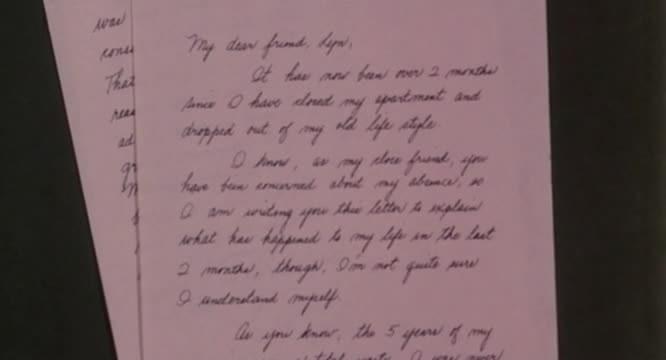 was
That
My dear friend, Lyn,
It has now been over 2 months
since I have closed my apartment and
dropped out of my old life style.
I know, as my close friend, you
have been concerned about my absence, so
I am writing you this letter to explain
what has happened to my life in the last
2 months, though, I'm not quite sure
I understand myself.
As you know, the 5 years of my
I was never